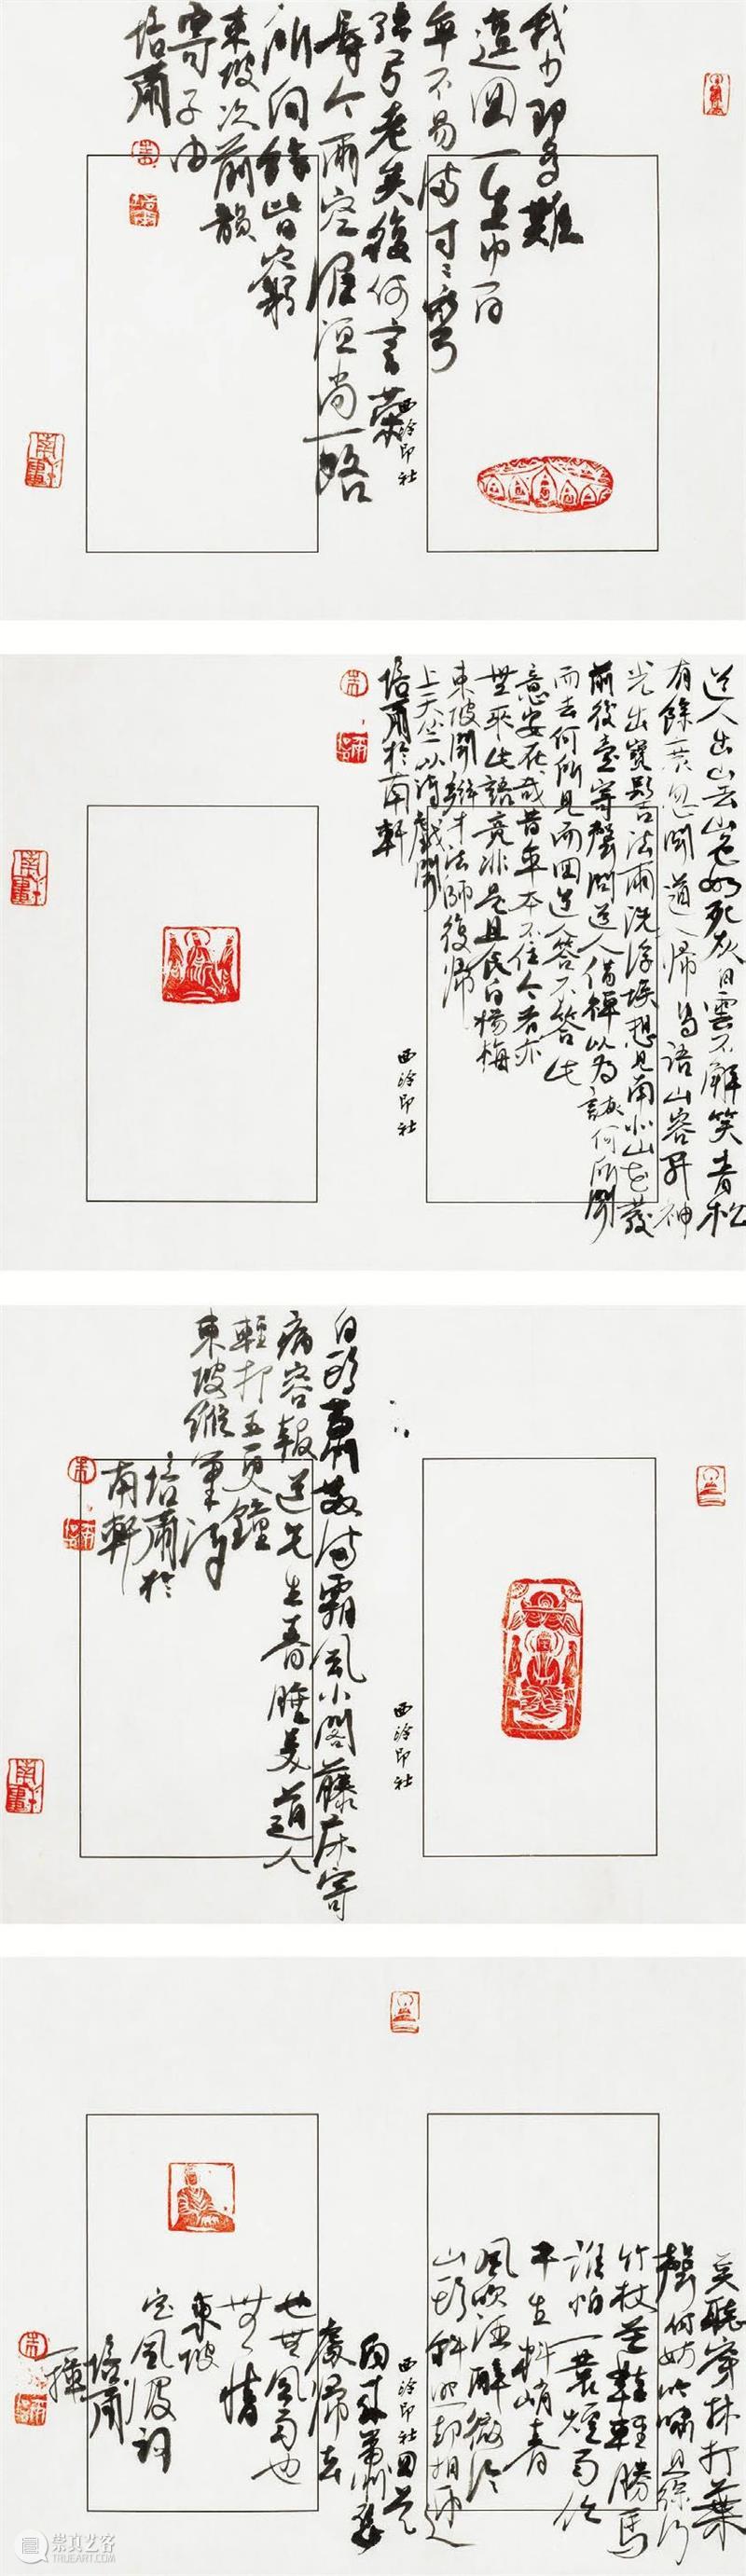 我少即多難
邅回一生中百
年不易滿寸寸彎
強弓老矣復何言榮
辱今兩空泥洹尚一路
所向餘皆窮
東坡次前韻
寄子由
培爾
西泠印社
道人出山去山色如死灰白雲不解笑青松
有餘哀忽聞道人歸鳥語山容開神
光出寶髻法雨洗浮埃想見南北山花發
前後臺寄聲問道人借禪以為詼何所聞
而去何所見而回道人笑不答此
意安在哉昔年本不住今者亦
無來此語竟非是且食白楊梅
東坡聞辯才法師復歸
上天竺以詩戲問
培爾於南軒
西泠印社
白頭蕭散滿霜風小閣藤床寄
病容報道先生春睡美道人
輕打五更鐘
東坡縱筆詩
培爾於
南軒
西泠印社
莫聽穿林打葉
聲何妨吟嘯且徐行
竹杖芒鞋輕勝馬
誰怕一蓑煙雨任
平生料峭春
風吹酒醒微冷
山頭斜照卻相迎
西泠印社
回首
向來蕭瑟
處歸去
也無風雨也
無情
東坡
定風波詞
培爾
一揮
崇真艺客